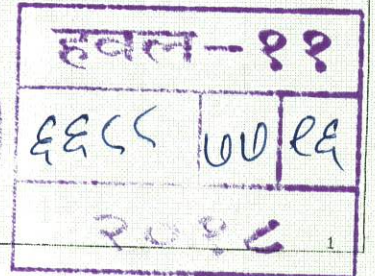 हवल-११
६६८८ ७७ १६
२०१८
1